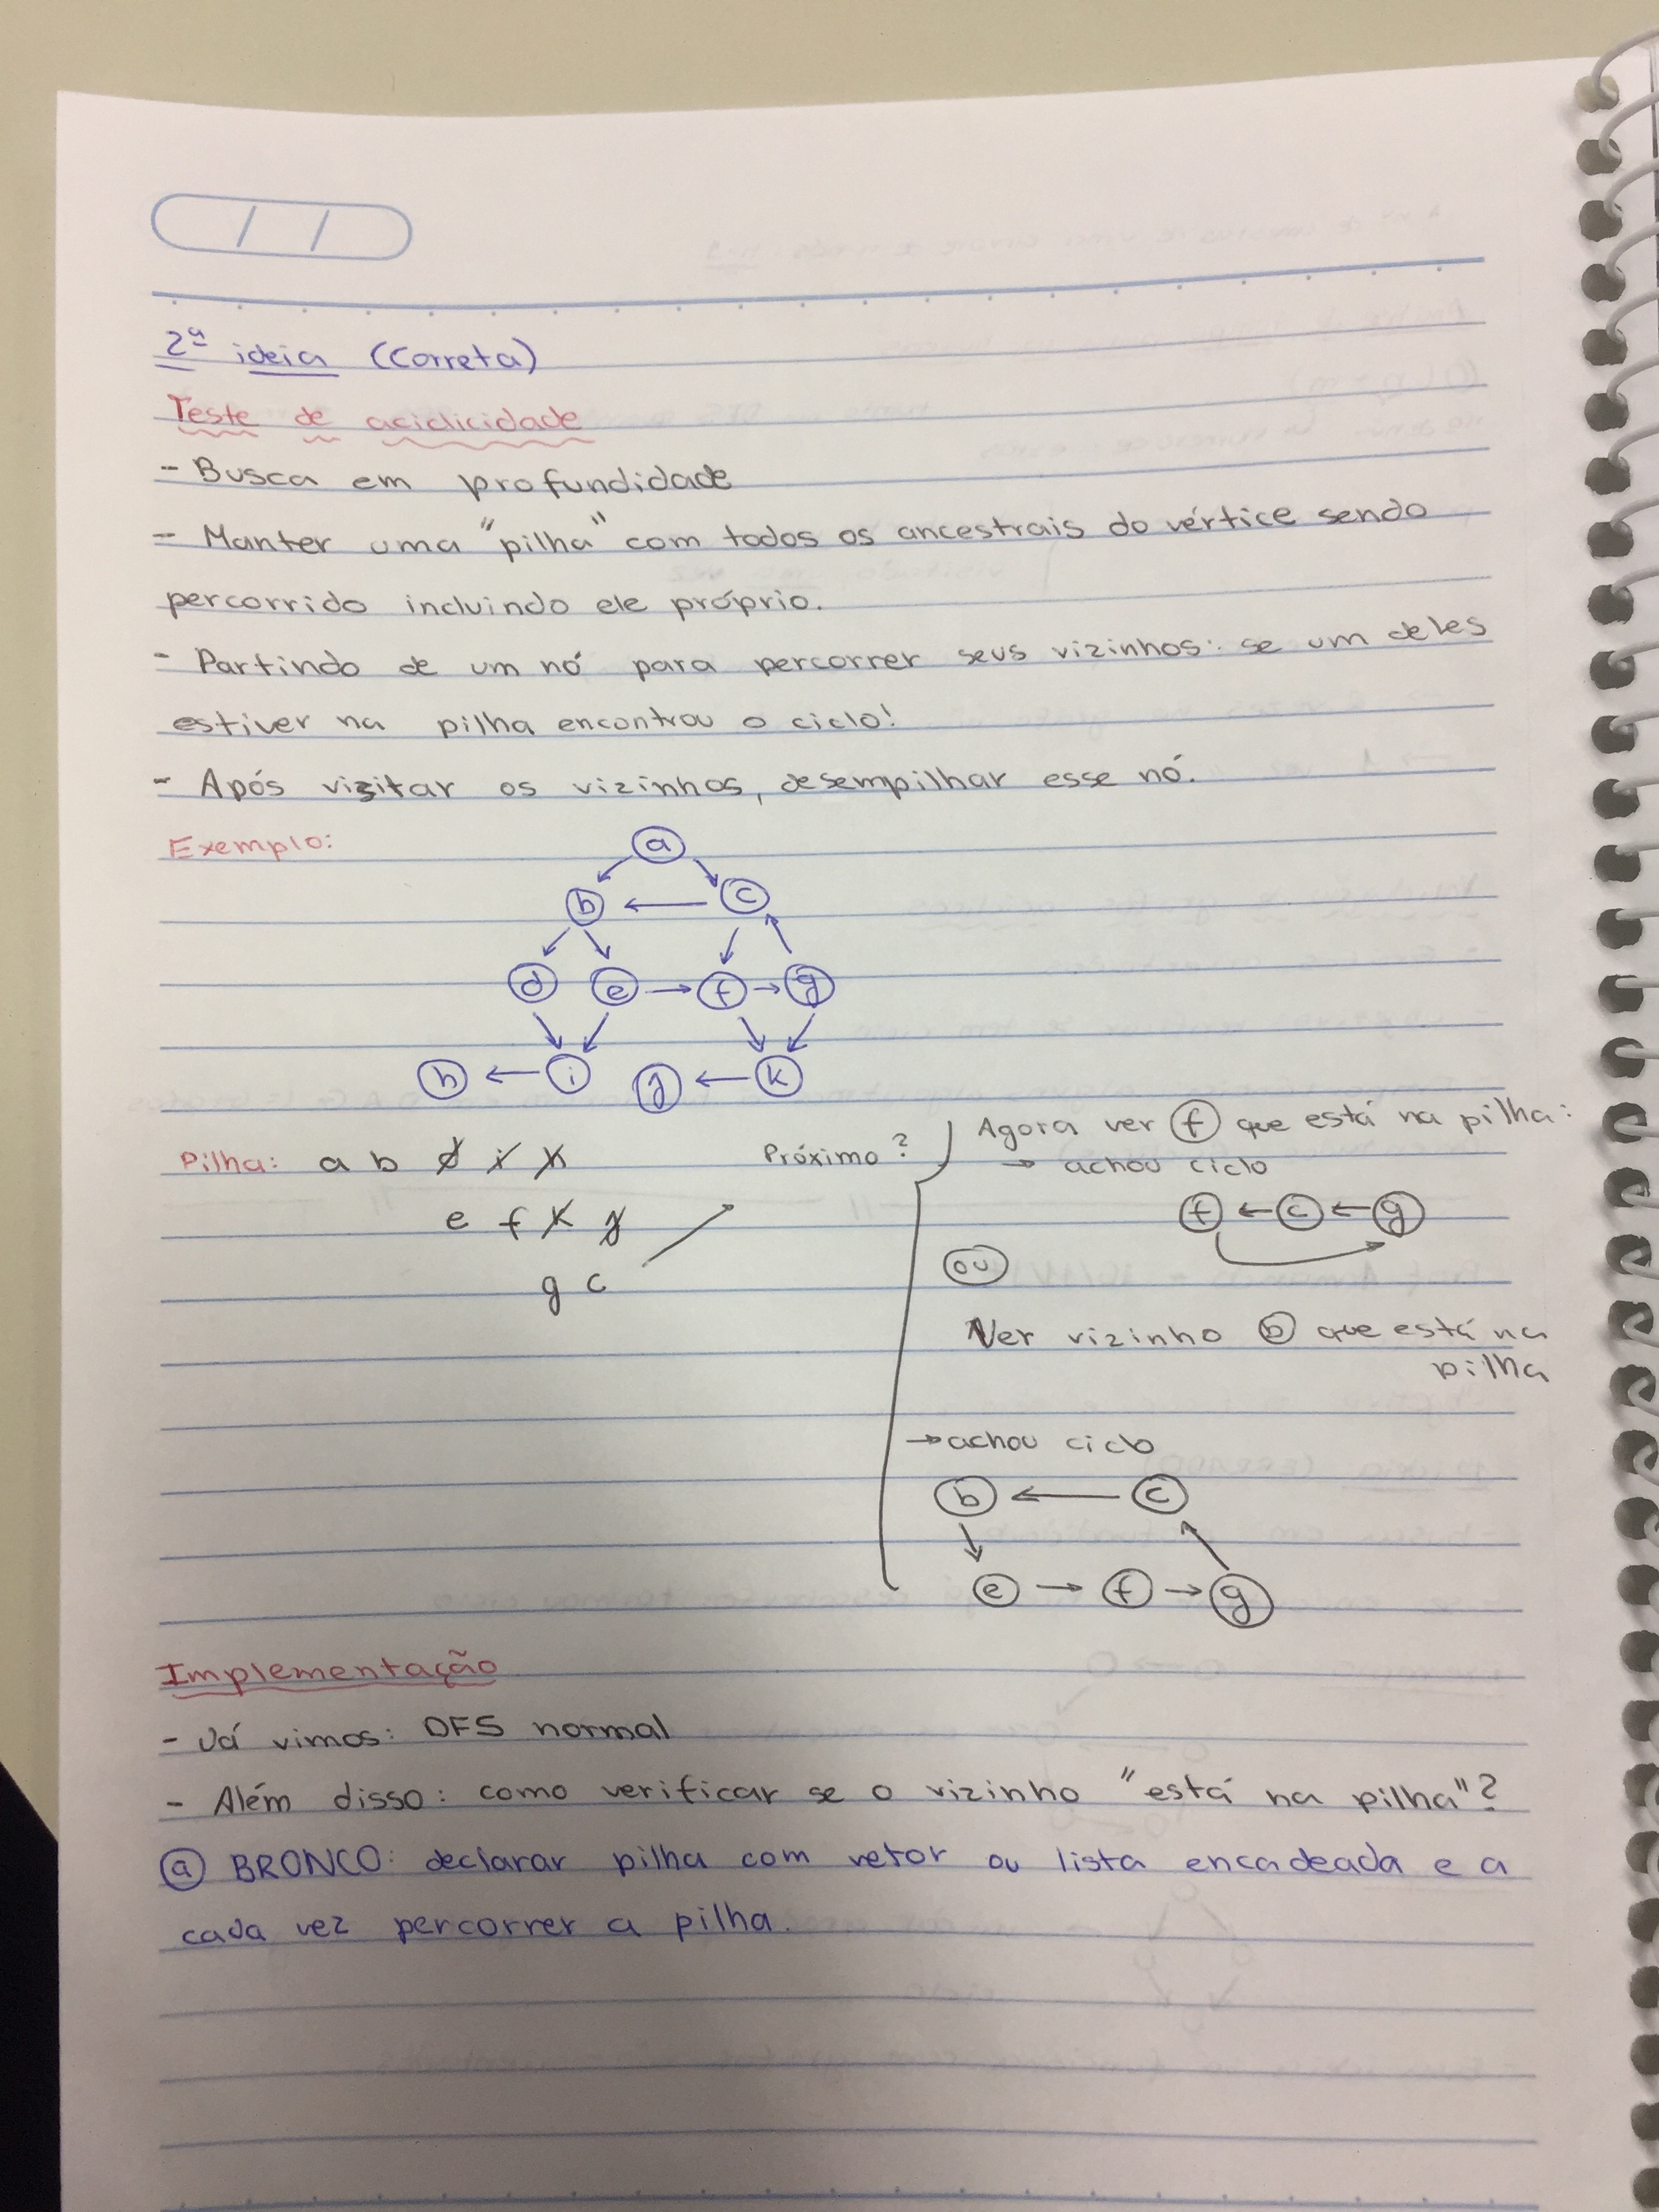 2ª ideia (correta)
Teste de aciclicidade
- Busca em profundidade
- Manter uma "pilha" com todos os ancestrais do vértice sendo
percorrido incluindo ele próprio.
- Partindo de um nó para percorrer seus vizinhos: se um deles
estiver na pilha encontrou o ciclo!
- Após visitar os vizinhos, desempilhar esse nó.
Exemplo:
a
b ← c
d e → f → g
h ← i j ← k
Pilha: a b d i h
e f k j
g c
Próximo?
Agora ver f que está na pilha:
→ achou ciclo
f ← c ← g
ou
Ver vizinho b que está na
pilha
→ achou ciclo
b ← c
e → f → g
Implementação
- Já vimos: DFS normal
- Além disso: como verificar se o vizinho "está na pilha"?
a BRONCO: declarar pilha com vetor ou lista encadeada e a
cada vez percorrer a pilha.